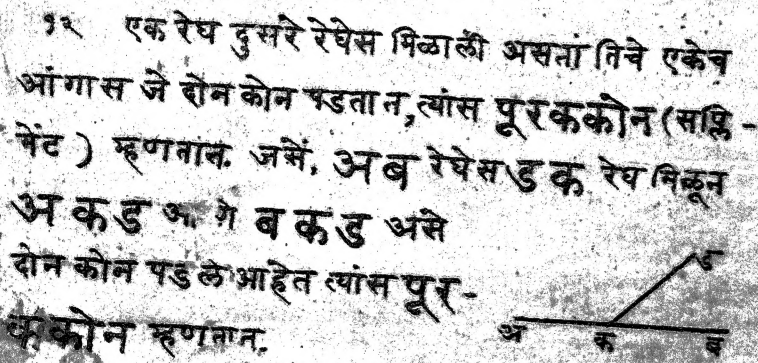 १२ एक रेघ दुसरे रेघेस मिळाली असतां तिचे एकेच
आंगास जे दोन कोन पडतात, त्यांस पूरककोन (सप्लि-
मेंट ) म्हणतात. जसें, अब रेघेस डक रेघ मिळून
अकड आणि बकड असे
दोन कोन पडले आहेत त्यांस पूर-
ककोन म्हणतात.
ड
अ क ब